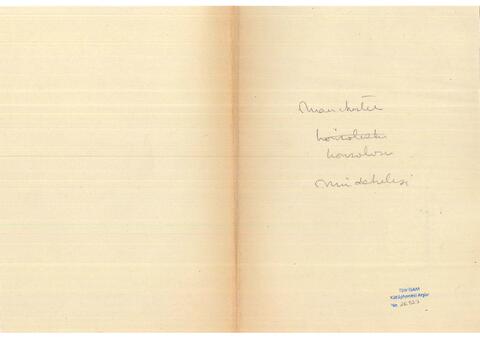 Manchester
konsolosu
Müdahelesi
TDV İSAM
Kütüphanesi Arşivi
No